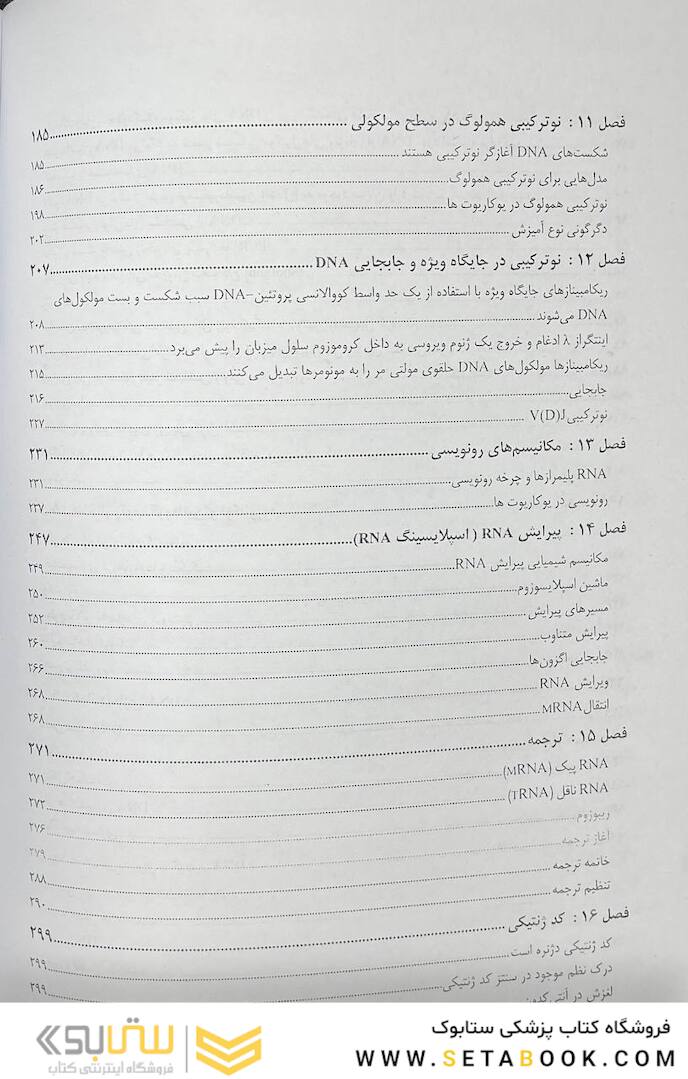 فصل ۱۱ : نوترکیبی همولوگ در سطح مولکولی ........ ۱۸۵
شکست‌های DNA آغازگر نوترکیبی هستند ........ ۱۸۵
مدل‌هایی برای نوترکیبی همولوگ ........ ۱۸۶
نوترکیبی همولوگ در یوکاریوت ها ........ ۱۹۸
دگرگونی نوع آمیزش ........ ۲۰۲
فصل ۱۲ : نوترکیبی در جایگاه ویژه و جابجایی DNA ........ ۲۰۷
ریکامبینازهای جایگاه ویژه با استفاده از یک حد واسط کووالانسی پروتئین-DNA سبب شکست و بست مولکول‌های
DNA می‌شوند ........ ۲۰۸
اینتگراز λ ادغام و خروج یک ژنوم ویروسی به داخل کروموزوم سلول میزبان را پیش می‌برد ........ ۲۱۳
ریکامبینازها مولکول‌های DNA حلقوی مولتی مر را به مونومرها تبدیل می‌کنند ........ ۲۱۵
جابجایی ........ ۲۱۶
نوترکیبی V(D)J ........ ۲۲۷
فصل ۱۳ : مکانیسم‌های رونویسی ........ ۲۳۱
RNA پلیمرازها و چرخه رونویسی ........ ۲۳۱
رونویسی در یوکاریوت ها ........ ۲۳۷
فصل ۱۴ : پیرایش RNA ( اسپلایسینگ RNA) ........ ۲۴۷
مکانیسم شیمیایی پیرایش RNA ........ ۲۴۹
ماشین اسپلایسوزوم ........ ۲۵۰
مسیرهای پیرایش ........ ۲۵۲
پیرایش متناوب ........ ۲۶۰
جابجایی اگزون‌ها ........ ۲۶۶
ویرایش RNA ........ ۲۶۸
انتقال MRNA ........ ۲۶۸
فصل ۱۵ : ترجمه ........ ۲۷۱
RNA پیک (MRNA) ........ ۲۷۱
RNA ناقل (TRNA) ........ ۲۷۳
ریبوزوم ........ ۲۷۶
آغاز ترجمه ........ ۲۷۹
خاتمه ترجمه ........ ۲۸۸
تنظیم ترجمه ........ ۲۹۰
فصل ۱۶ : کد ژنتیکی ........ ۲۹۹
کد ژنتیکی دژنره است ........ ۲۹۹
درک نظم موجود در سنتز کد ژنتیکی ........ ۲۹۹
لغزش در آنتی‌کدون
فروشگاه کتاب پزشکی ستابوک
WWW.SETABOOK.COM
ستابوک
فروشگاه اینترنتی کتاب